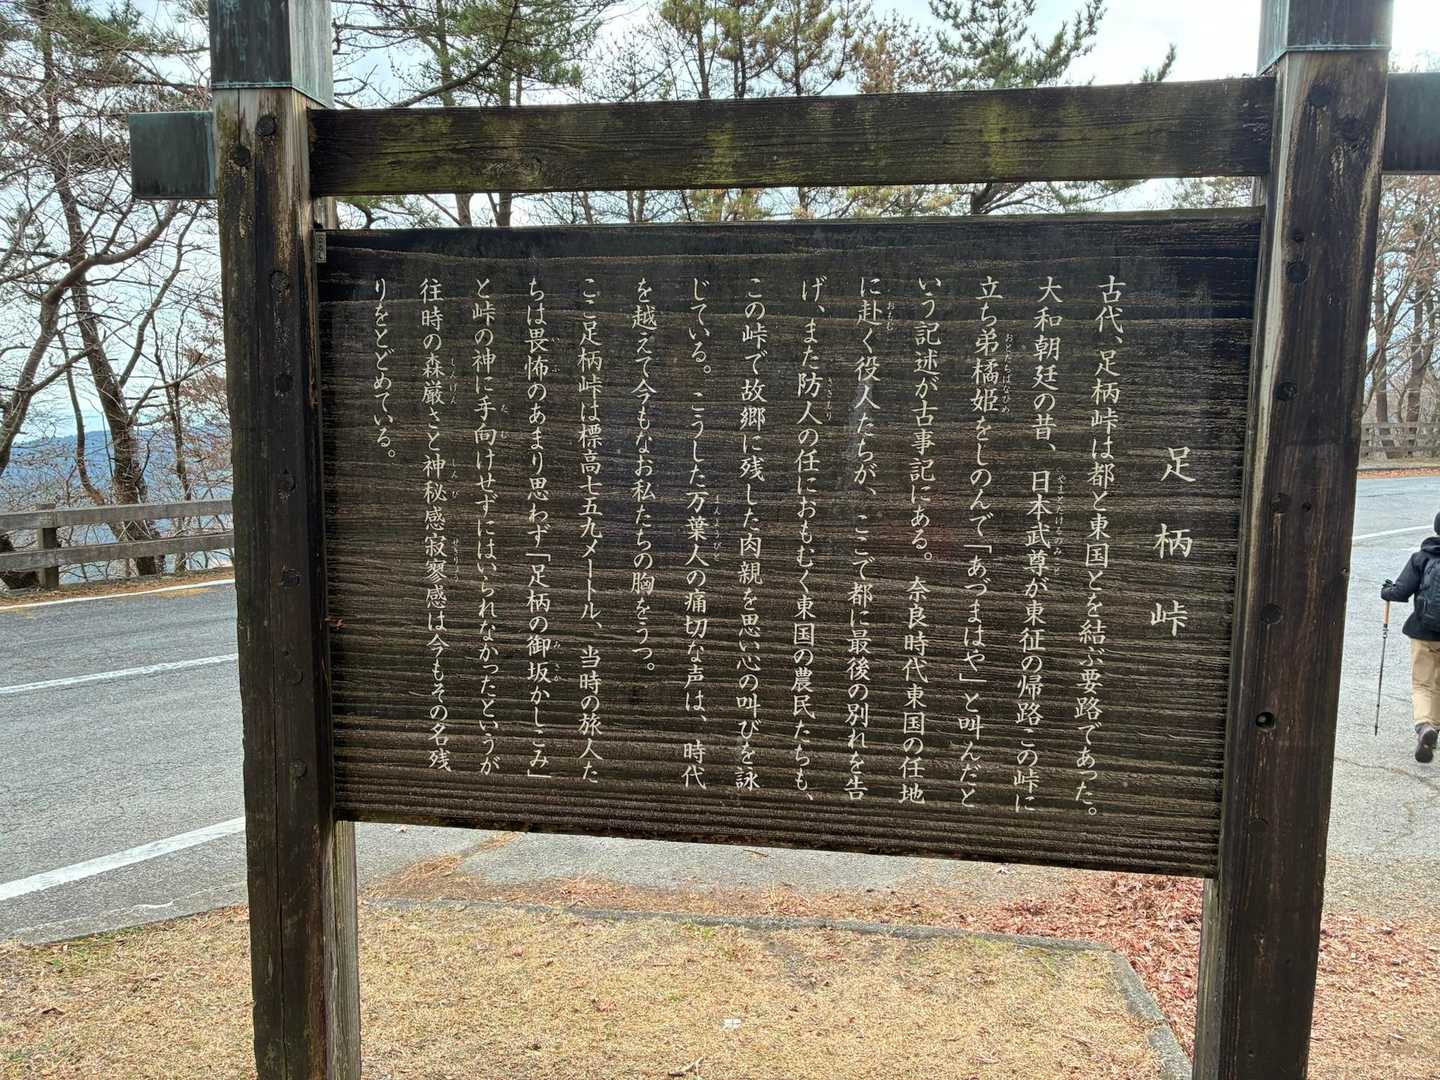 足柄峠
古代、足柄峠は都と東国とを結ぶ要路であった。
大和朝廷の昔、日本武尊が東征の帰路この峠に
立ち弟橘姫をしのんで「あづまはや」と叫んだと
いう記述が古事記にある。奈良時代東国の任地
に赴く役人たちが、ここで都に最後の別れを告
げ、また防人の任におもむく東国の農民たちも、
この峠で故郷に残した肉親を思い心の叫びを詠
じている。こうした万葉人の痛切な声は、時代
を越えて今もなお私たちの胸をうつ。
ここ足柄峠は標高七五九メートル、当時の旅人た
ちは畏怖のあまり思わず「足柄の御坂かしこみ」
と峠の神に手向けせずにはいられなかったというが
往時の森厳さと神秘感寂寥感は今もその名残
りをとどめている。